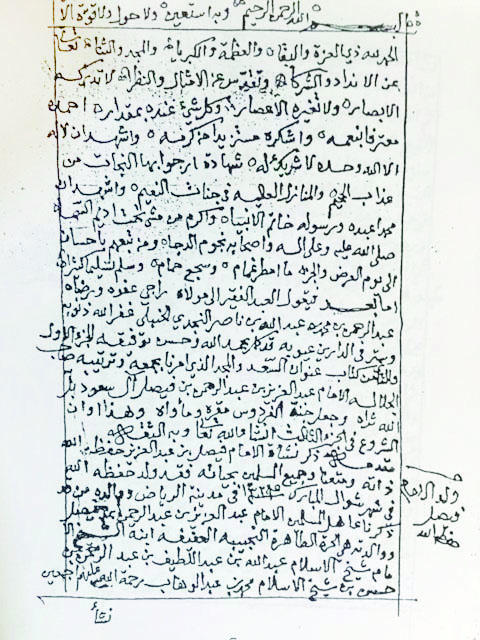 بسم الله الرحمن الرحيم وبه استعين ولا حول ولا قوة الا
الحمد لله ذي العزة والبقاء والعظمة والكبرياء والمجد والثناء تعالى
عن الانداد والشركاء وتقدس عن الامثال والنظراء لا تدركه
الابصار ولا تغيره الاعصار وكل شيء عنده بمقدار احمده
معترفا بنعمه واشكره مستزيدا من كرمه واشهد ان لا اله
الا الله وحده لا شريك له شهادة ارجو بها النجات من
عذاب الجحيم والمنازل العليه في جنات النعيم واشهد ان
محمدا عبده ورسوله خاتم الانبياء واكرم من مشى تحت اديم السماء
صلى الله عليه وعلى آله واصحابه نجوم الدجاء ومن تبعهم باحسان
الى يوم العرض والجزاء ما امطر غمام وسجع حمام وسلم تسليما كثيرا
اما بعد فيقول العبد الفقير الى مولاه راجي عفوه ورضاه
عبدالرحمن بن عبدالله بن ناصر النجدي الحنبلي غفر الله ذنوبه
وستر في الدارين عيوبه قد تم بحمد الله وحسن توفيقه الجزء الاول
والثاني من كتاب عنوان السعد والمجد الذي امرنا بجمعه وترتيبه صاحب
الجلالة الامام عبدالعزيز بن عبدالرحمن بن فيصل آل سعود بل
الله ثراه وجعل جنة الفردوس مقره ومأواه وهذا اوان
الشروع في الجزء الثالث انشاء الله تعالى وبه الثقه
ذكر نشأة الامام فيصل بن عبدالعزيز حفظه الله
ومتعنا وجميع المسلمين بحياته فقد ولد حفظه الله
في شهر شوال المبارك في مدينة الرياض ووالده من قد
ذكرنا عاهل المسلمين الامام عبدالعزيز بن عبدالرحمن بن فيصل
ووالدته هي الحرة الطاهرة النجيبه العفيفه ابنة الشيخ
شيخ الاسلام عبدالله بن عبداللطيف بن عبدالرحمن بن
حسن بن شيخ الاسلام محمد بن عبدالوهاب رحمة الله عليهم اجمعين
ولد الامام
فيصل
حفظه الله
نشأ